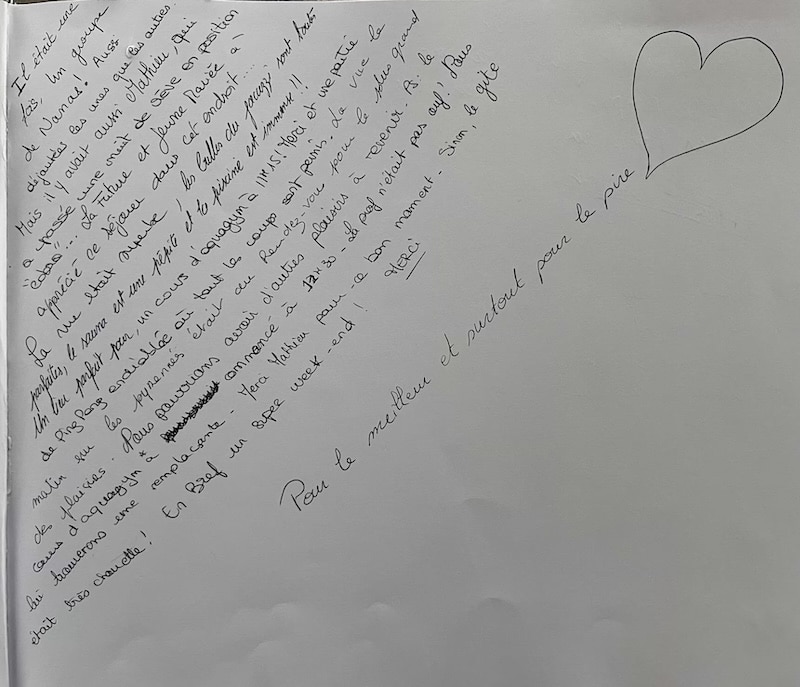 Il était une
fois, un groupe
de Nanas! Aussi
déjantées les unes que les autres.
Mais il y avait aussi Mathieu, qui
a passé une nuit de rêve en position
"cobra"... La Future et Jeune Mariée a
apprécié ce séjour dans cet endroit...
La vue était superbe! les bulles du jacuzzi sont toute
parfaites, le sauna est une pépite et la piscine est immense!!
Un lieu parfait pour, un cours d'aquagym à 11H15! Merci et une partie
de Ping Pong endiablée où tout les coups sont permis. La vue le
matin sur les pyrennées était au Rendez-vous pour le plus grand
des plaisirs. Nous pourrions avoir d'autres plaisirs à revenir. PS: le
cours d'aquagym à commencé à 12H30 - La prof n'était pas ouf! Nous
lui trouverons une remplaçante - Merci Mathieu pour ce bon moment - Sinon, le gîte
était très chouette! En Bref un super week-end! MERCI
Pour le meilleur et surtout pour le pire